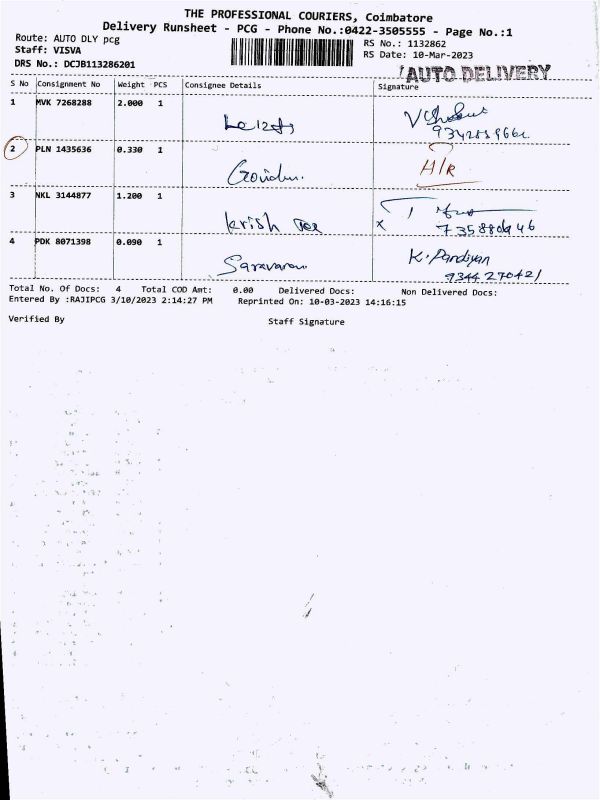 THE PROFESSIONAL COURIERS, Coimbatore
Delivery Runsheet - PCG - Phone No.:0422-3505555 - Page No.:1
Route: AUTO DLY pcg
RS No.: 1132862
Staff: VISVA
RS Date: 10-Mar-2023
DRS No.: DCJB113286201
AUTO DELIVERY
S No Consignment No Weight PCS Consignee Details Signature
1 MVK 7268288 2.000 1
2 PLN 1435636 0.330 1
H/R
3 NKL 3144877 1.200 1
krish
x 735880946
4 PDK 8071398 0.090 1
Saravanan K. Pandiyan
9344270421
Total No. Of Docs: 4 Total COD Amt: 0.00 Delivered Docs: Non Delivered Docs:
Entered By :RAJIPCG 3/10/2023 2:14:27 PM Reprinted On: 10-03-2023 14:16:15
Verified By Staff Signature